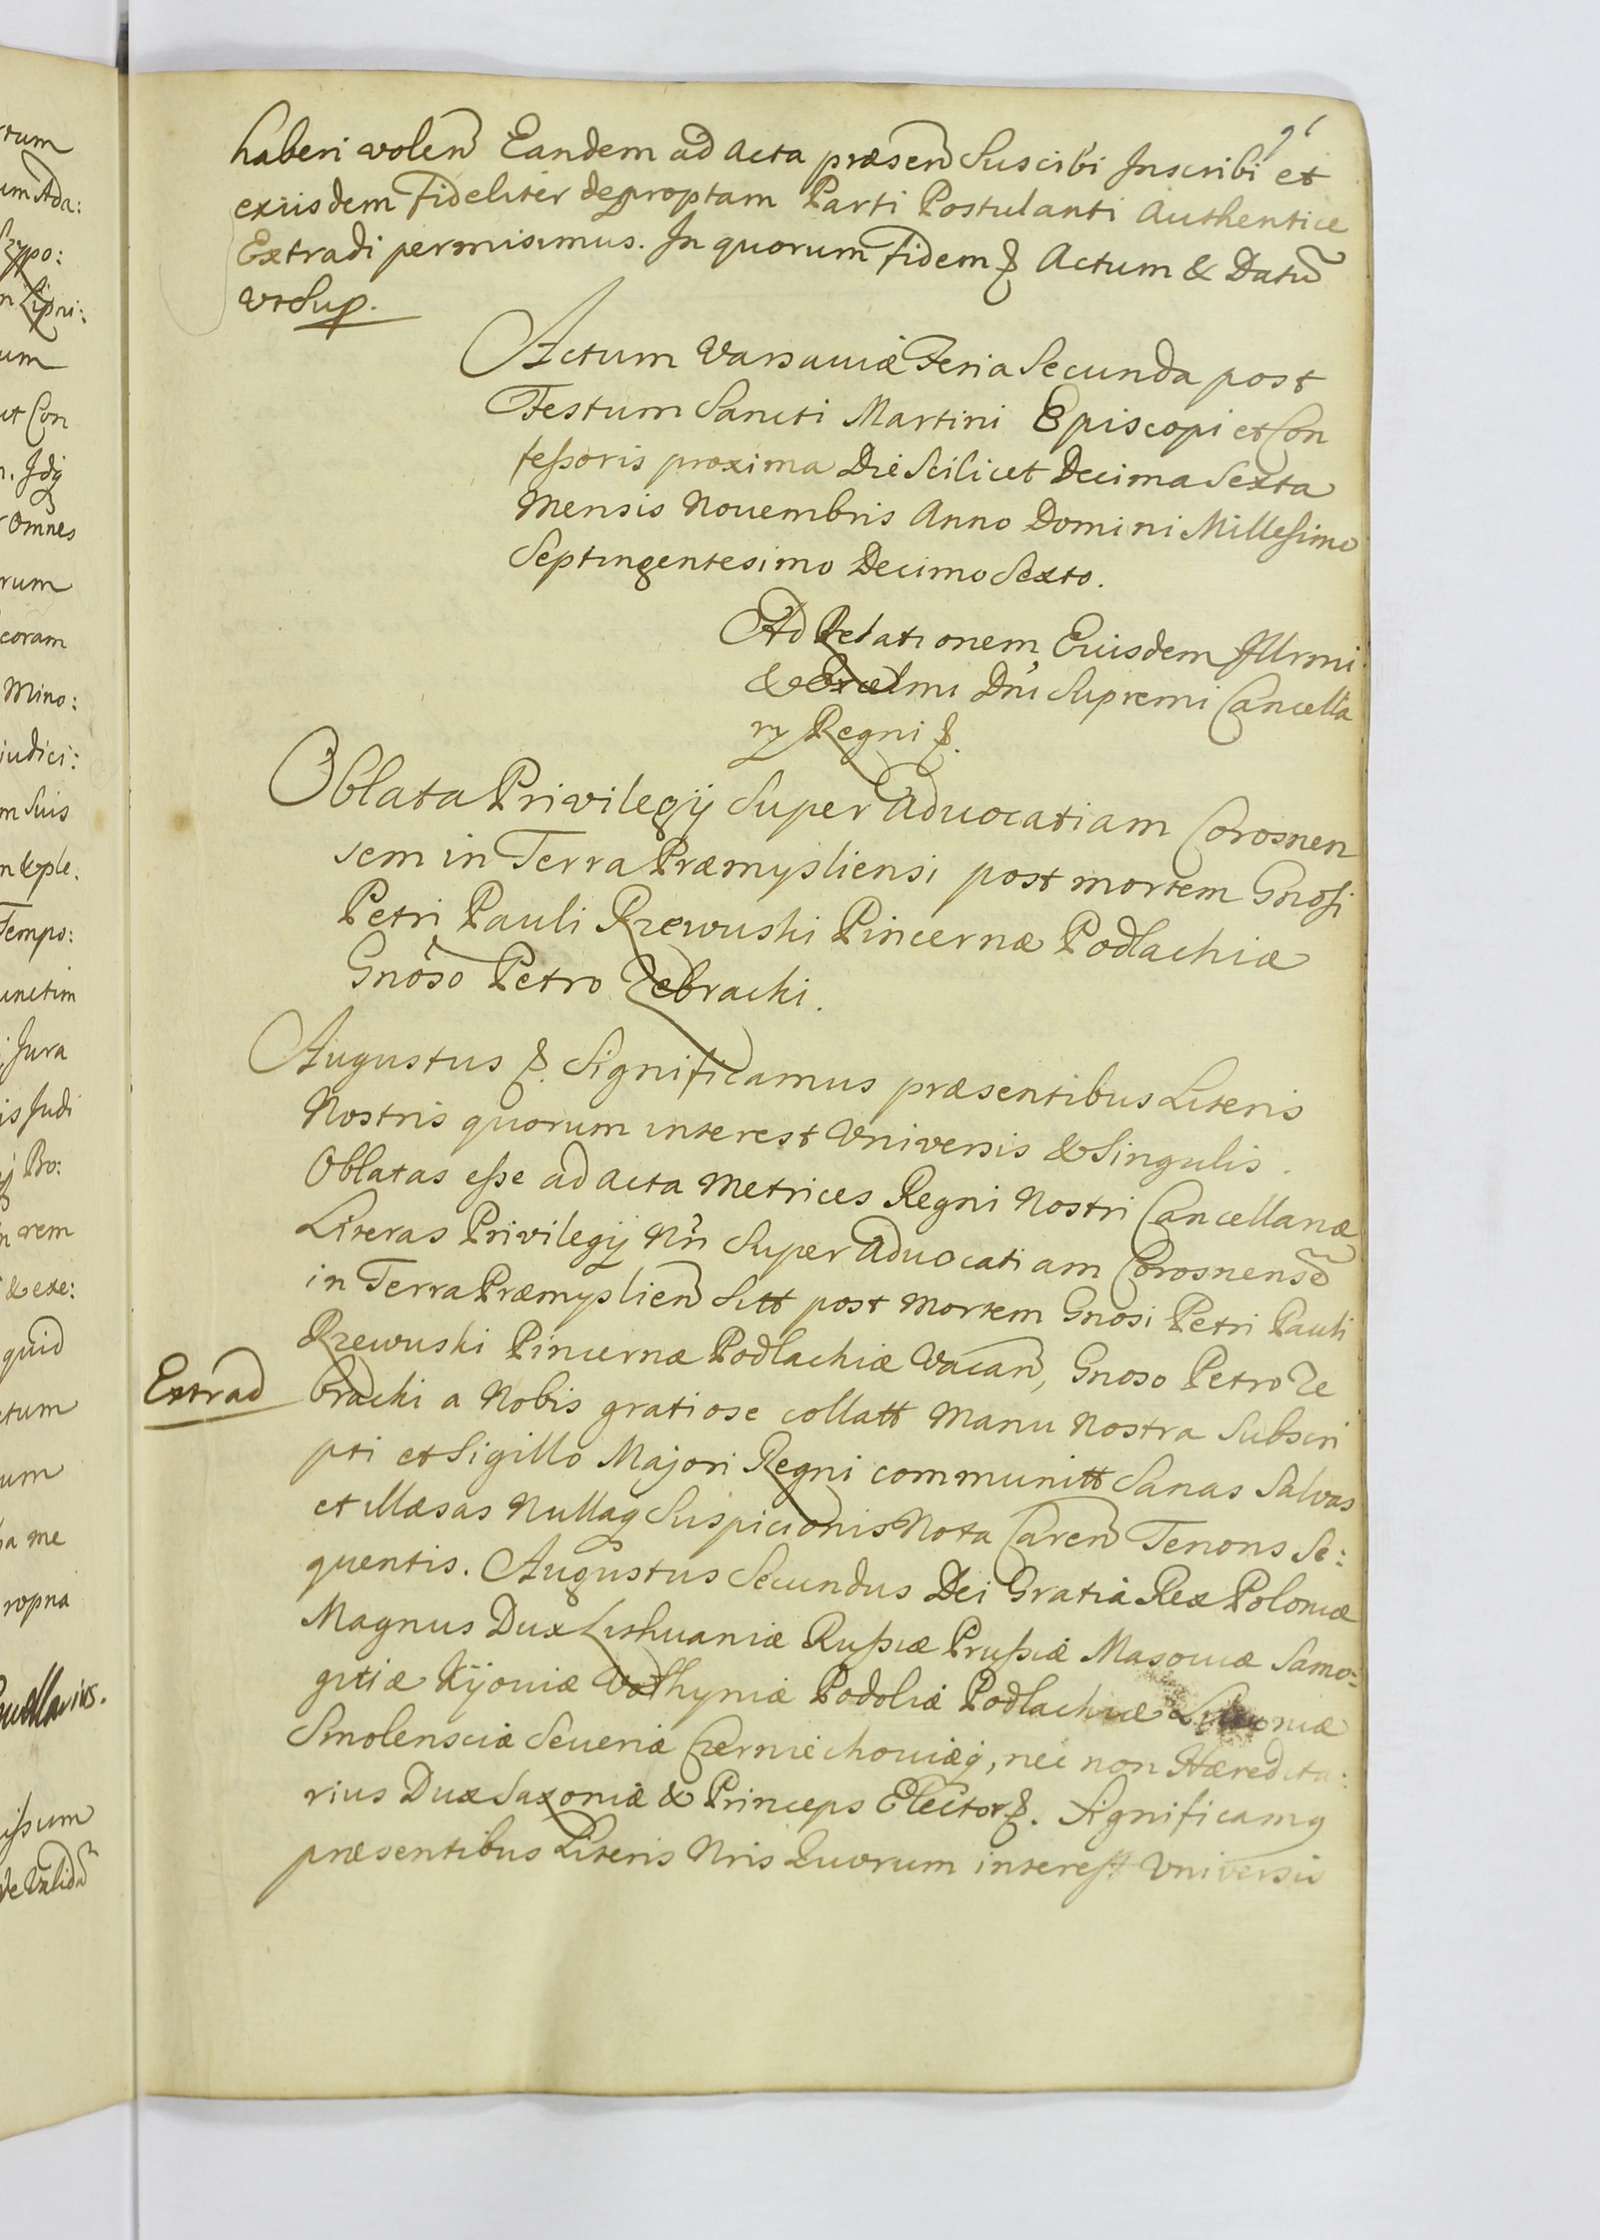 91
haberi volen Eandem ad Acta præsen Suscibi Inscribi et
exiisdem fideliter depromptam Parti Postulanti Authentice
Extradi permisimus. In quorum fidem &. Actum & Datū
vt Sup.
Actum Varsaviæ Feria Secunda post
Festum Sancti Martini Episcopi et Con
feßoris proxima Die Scilicet Decima Sexta
Mensis Nouembris Anno Domini Millesimo
Septingentesimo Decimo Sexto.
Ad Relationem Eiusdem Illrmi
& Excelmi Dni Supremi Cancella
ry Regni &.
Oblata Privilegij Super Aduocatiam Corosnen
sem in Terra Præmysliensi post mortem Gnosi
Petri Pauli Rzewuski Pincernæ Podlachiæ
Gnoso Petro Zebracki.
Augustus &. Significamus præsentibus Literis
Nostris quorum interest Vniversis & Singulis.
Oblatas eße ad Acta Metrices Regni Nostri Cancellariæ
Literas Privilegij Nri Super Aduocatiam Corosnensē
in Terra Præmyslien Sitt post mortem Gnosi Petri Pauli
Rzewuski Pincernæ Podlachiæ Vacan, Gnoso Petro Ze
Extrad
bracki a Nobis gratiose collatt Manu Nostra Subscri
pti et Sigillo Majori Regni communitt Sanas Salvas
et illæsas Nullaq Suspicionis Nota Caren Tenoris Se:
quentis. Augustus Secundus Dei Gratia Rex Poloniæ
Magnus Dux Lithuaniæ Rußiæ Prußiæ Masouiæ Samo=
gitiæ Kijouiæ Volhyniæ Podoliæ Podlachiæ Liuoniæ
Smolensciæ Seueriæ Czerniechouiæq, nec non Hæredita:
rius Dux Saxoniæ & Princeps Elector &. Significamq
præsentibus Literis Nris Quorum interest Vniversis